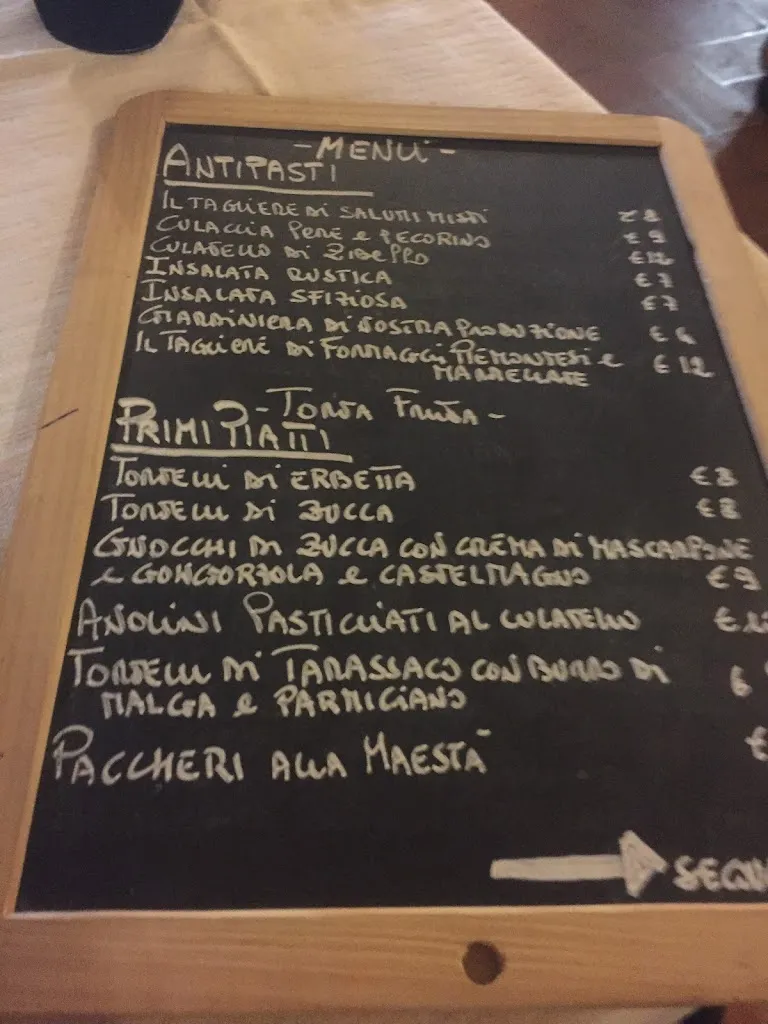 -MENU-
ANTIPASTI
IL TAGLIERE DI SALUMI MISTI € 8
CULACCIA PERE E PECORINO € 9
CULATELLO DI ZIBELLO € 12
INSALATA RUSTICA € 7
INSALATA SFIZIOSA € 7
GIARDINIERA DI NOSTRA PRODUZIONE € 6
IL TAGLIERE DI FORMAGGI PIEMONTESI E € 12
MARMELLATE
-TORTA FRITTA-
PRIMI PIATTI
TORTELLI DI ERBETTA € 8
TORTELLI DI ZUCCA € 8
GNOCCHI DI ZUCCA CON CREMA DI MASCARPONE
E GONGORZOLA E CASTELMAGNO € 9
ANOLINI PASTICCIATI AL CULATELLO €
TORTELLI DI TARASSACO CON BURRO DI
MALGA E PARMIGIANO €
PACCHERI ALLA MAESTÀ €
SEGU